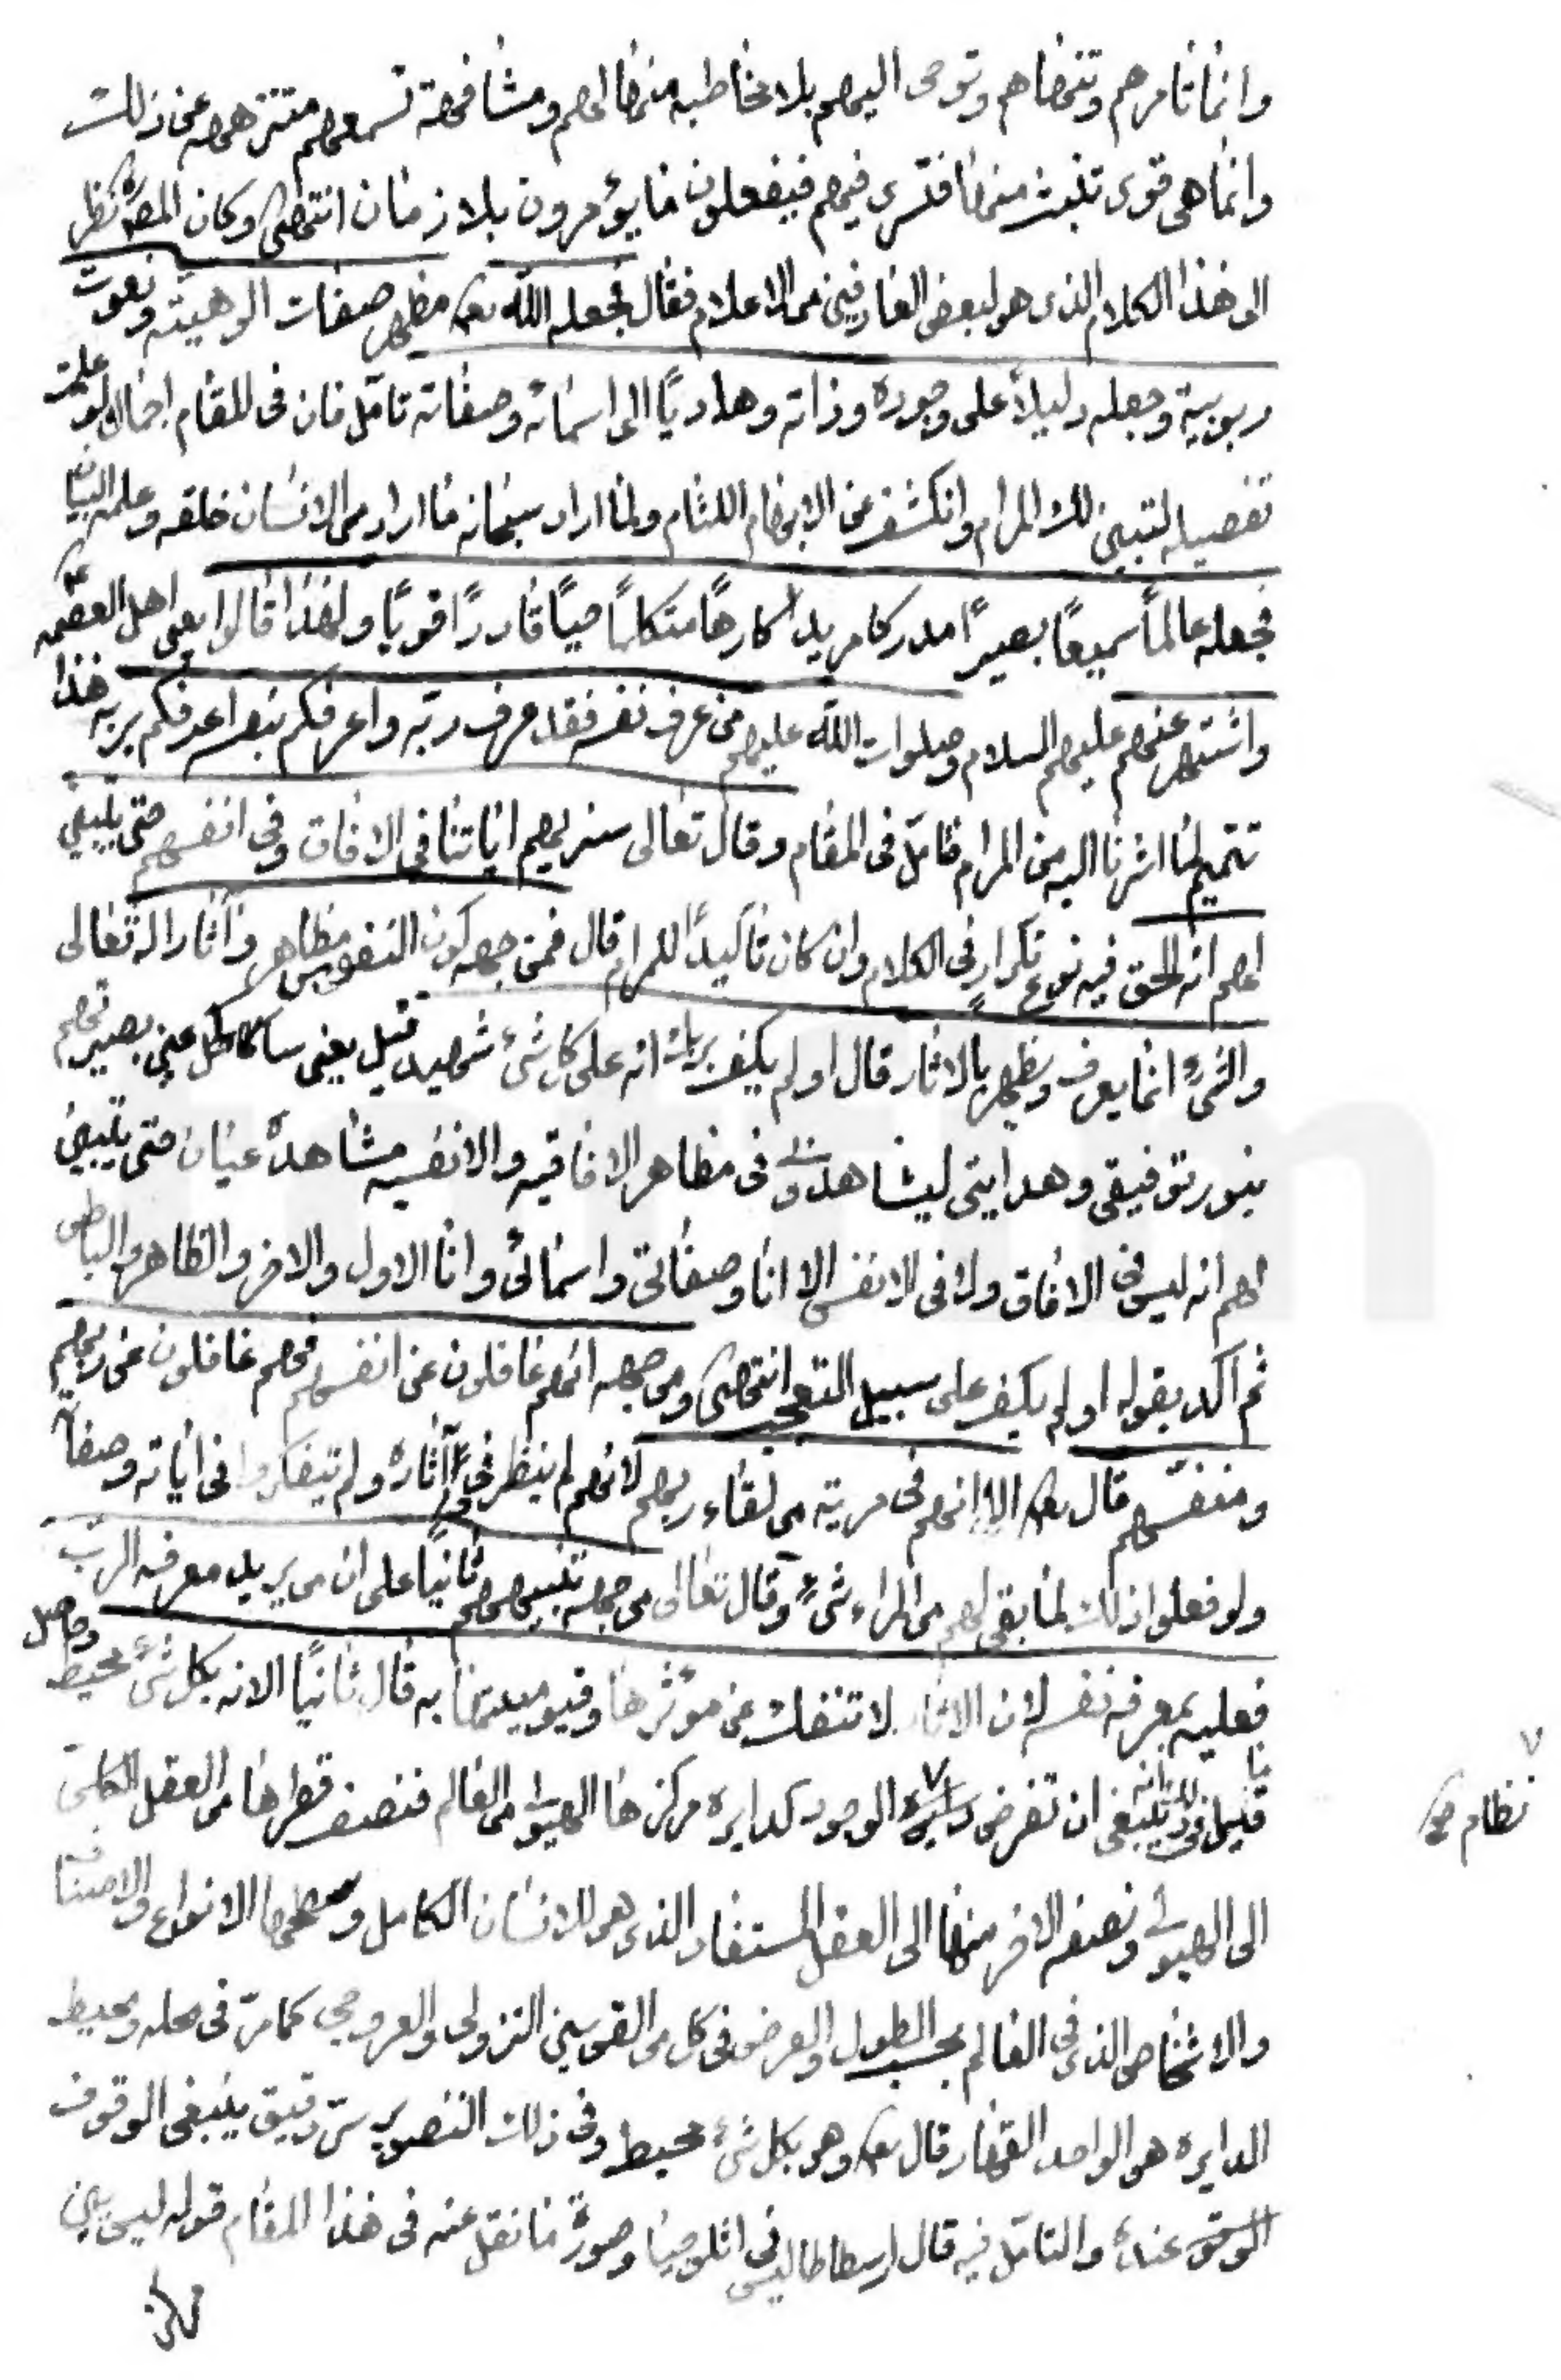 وانما تامرهم وتنهاهم وتوحى اليهم بلا مخاطبه منها لهم ومشافهة تسمعهم متنزهه عن ذلك
وانما هى قوى تلبث منها فتسرى فيهم فيفعلون ما يؤمرون بلا زمان انتهى وكان المص ره نظر
الى هذا الكلام الذى هو لبعض العارفين من الاعلام فقال فجعله الله تعـ مظهر صفات الوهيته ونعوت
ربوبية وجعله دليلاً على وجوده وذاته وهادياً الى اسمائه وصفاته تامّل فان فى المقام اجمال لو علمت
تفصيله لتبين لك المرام وانكشف عن الابهام اللثام ولما اراد سبحانه ما اراد من الانسان خلقه وعلمه البيان
فجعله عالماً سميعاً بصيراً مدركا مريداً كارهاً متكلماً حياً قادراً قوياً ولهذا قالوا يعنى اهل العصمه
واشتهر عنهم عليهم السلام وصلوات الله عليهم من عرف نفسه فقد عرف ربّه واعرفكم بنفسه اعرفكم بربه هذا
تتميم لما اشرنا اليه من المرام فتامّل فى المقام وقال تعالى سنريهم اياتنا فى الافاق وفى انفسهم حتى يتبين
لهم انه الحق فيه نوع تكرار فى الكلام وان كان تاكيداً للمرام قال فمن جهه كون النفوس مظاهر وآثار اله تعالى
والشئ انما يعرف ويظهر بالاثار قال اولم يكف بربك انه على كل شئ شهيد قيل يعنى ساكحل عين بصيرتهم
بنور توفيقى وهدايتى ليشاهدونى فى مظاهر الافاقيه والانفسيه مشاهدة عيان حتى يتبين
لهم انه ليس فى الافاق ولا فى الانفس الا انا وصفاتى واسمائى وانا الاول والاخر والظاهر والباطن
ثم اكد بقوله اولم يكف على سبيل التعجب انتهى ومن جهه انهم غافلون عن انفسهم فهم غافلون عن ربهم
قال تعـ الا انهم فى مرية من لقاء ربهم لانهم لم ينظر فى آثاره ولم يتفكروا فى اياته وصفاته
ولو فعلوا ذلك لما بقى لهم من المراء شئ وقال تعالى من جهه تنبيههم ثانياً على ان من يريد معرفه الرب
فعليه بمعرفه نفسه لان الاثار لا تنفك عن موثرها وقيوميتها به قال ثانياً الا انه بكل شئ محيط وحاصل
ما قيل فى ذلك انه ينبغى ان تفرض الوجود كدايره مركزها الهيولى من العالم فنصف قطرها من العقل الكلى
نظام صح
الى الهيولى ونصفه الاخر منها الى العقل المستفاد الذى هو الانسان الكامل وسطحها الانواع والاصناف
والاشخاص الذى فى العالم بحسب الطول والعرض فى كل من القوسين النزولى والعروجى كما مرّ فى محله ومحيط
الدايره هو الواحد القهار قال تعـ وهو بكل شئ محيط وفى ذلك التصوير سرّ دقيق ينبغى الوقوف
عنده والتامّل فيه قال ارسطاطاليس فى اثلوجيا وصورة ما نقل عنه فى هذا المقام قوله ليس بين